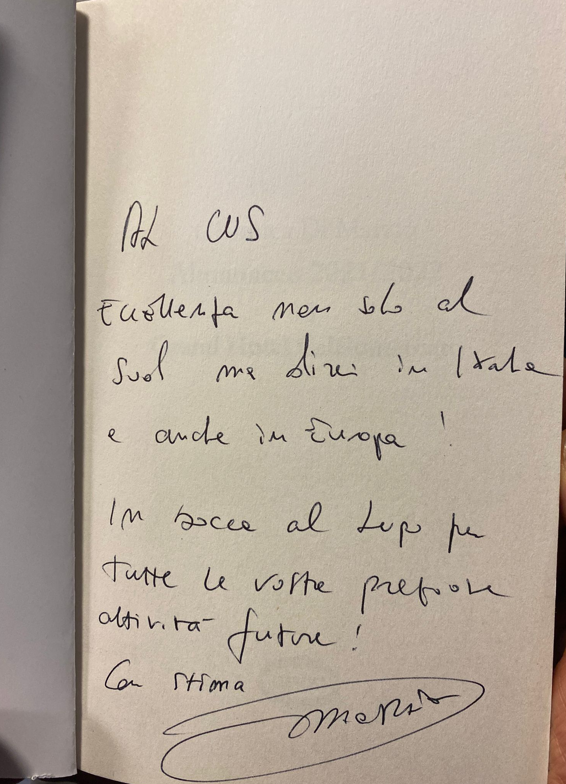 AL CUS
Eccellenza non solo al
Sud ma direi in Italia
e anche in Europa !
In bocca al lupo per
tutte le vostre preziose
attività future !
Con stima